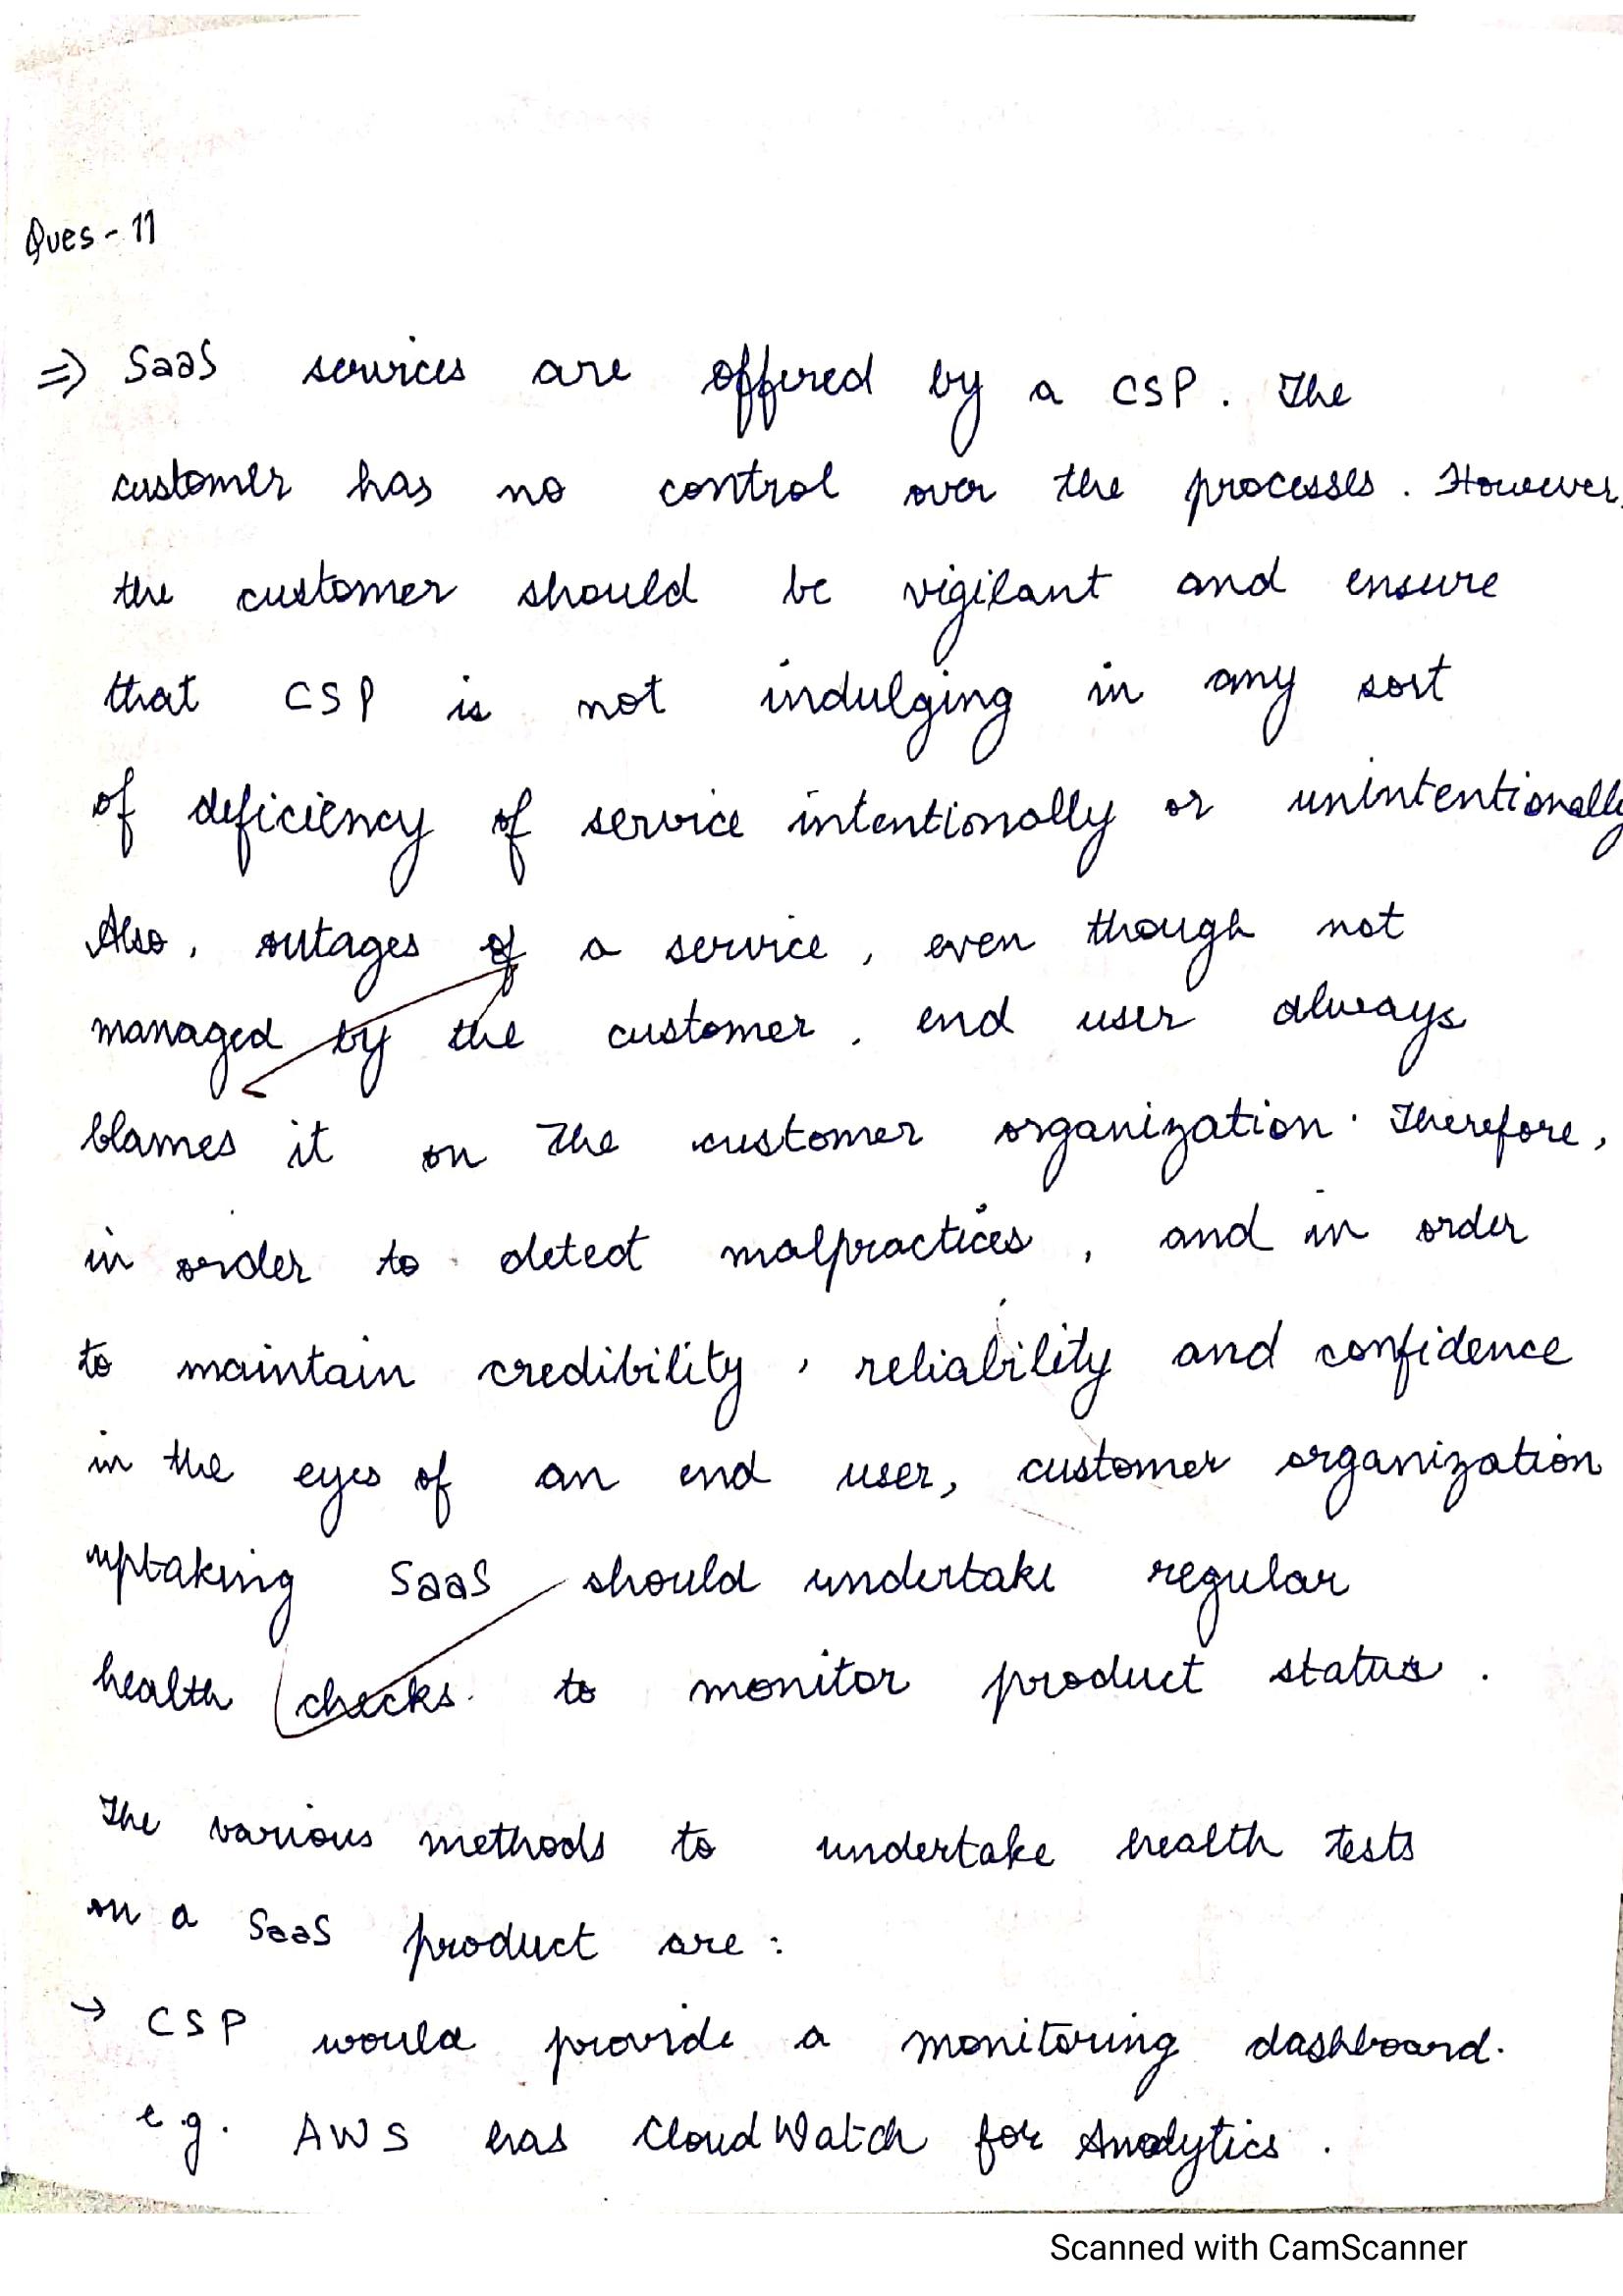 Ques - 11
⇒ SaaS services are offered by a CSP. The
customer has no control over the processes. However,
the customer should be vigilant and ensure
that CSP is not indulging in any sort
of deficiency of service intentionally or unintentionally
Also, outages of a service, even though not
managed by the customer, end user always
blames it on the customer organization. Therefore,
in order to detect malpractices, and in order
to maintain credibility, reliability and confidence
in the eyes of an end user, customer organization
uptaking SaaS should undertake regular
health checks to monitor product status.
The various methods to undertake health tests
on a SaaS product are:
→ CSP would provide a monitoring dashboard.
e.g. AWS has CloudWatch for Analytics.
Scanned with CamScanner